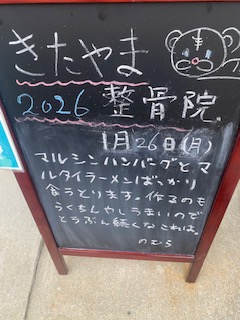 きたやま
2026 整骨院
1月26日(月)
マルシンハンバーグとマ
ルタイラーメンばっかり
食うとります。作るのも
らくちんやしうまいので
とうぶん続くなこれは。
のむら